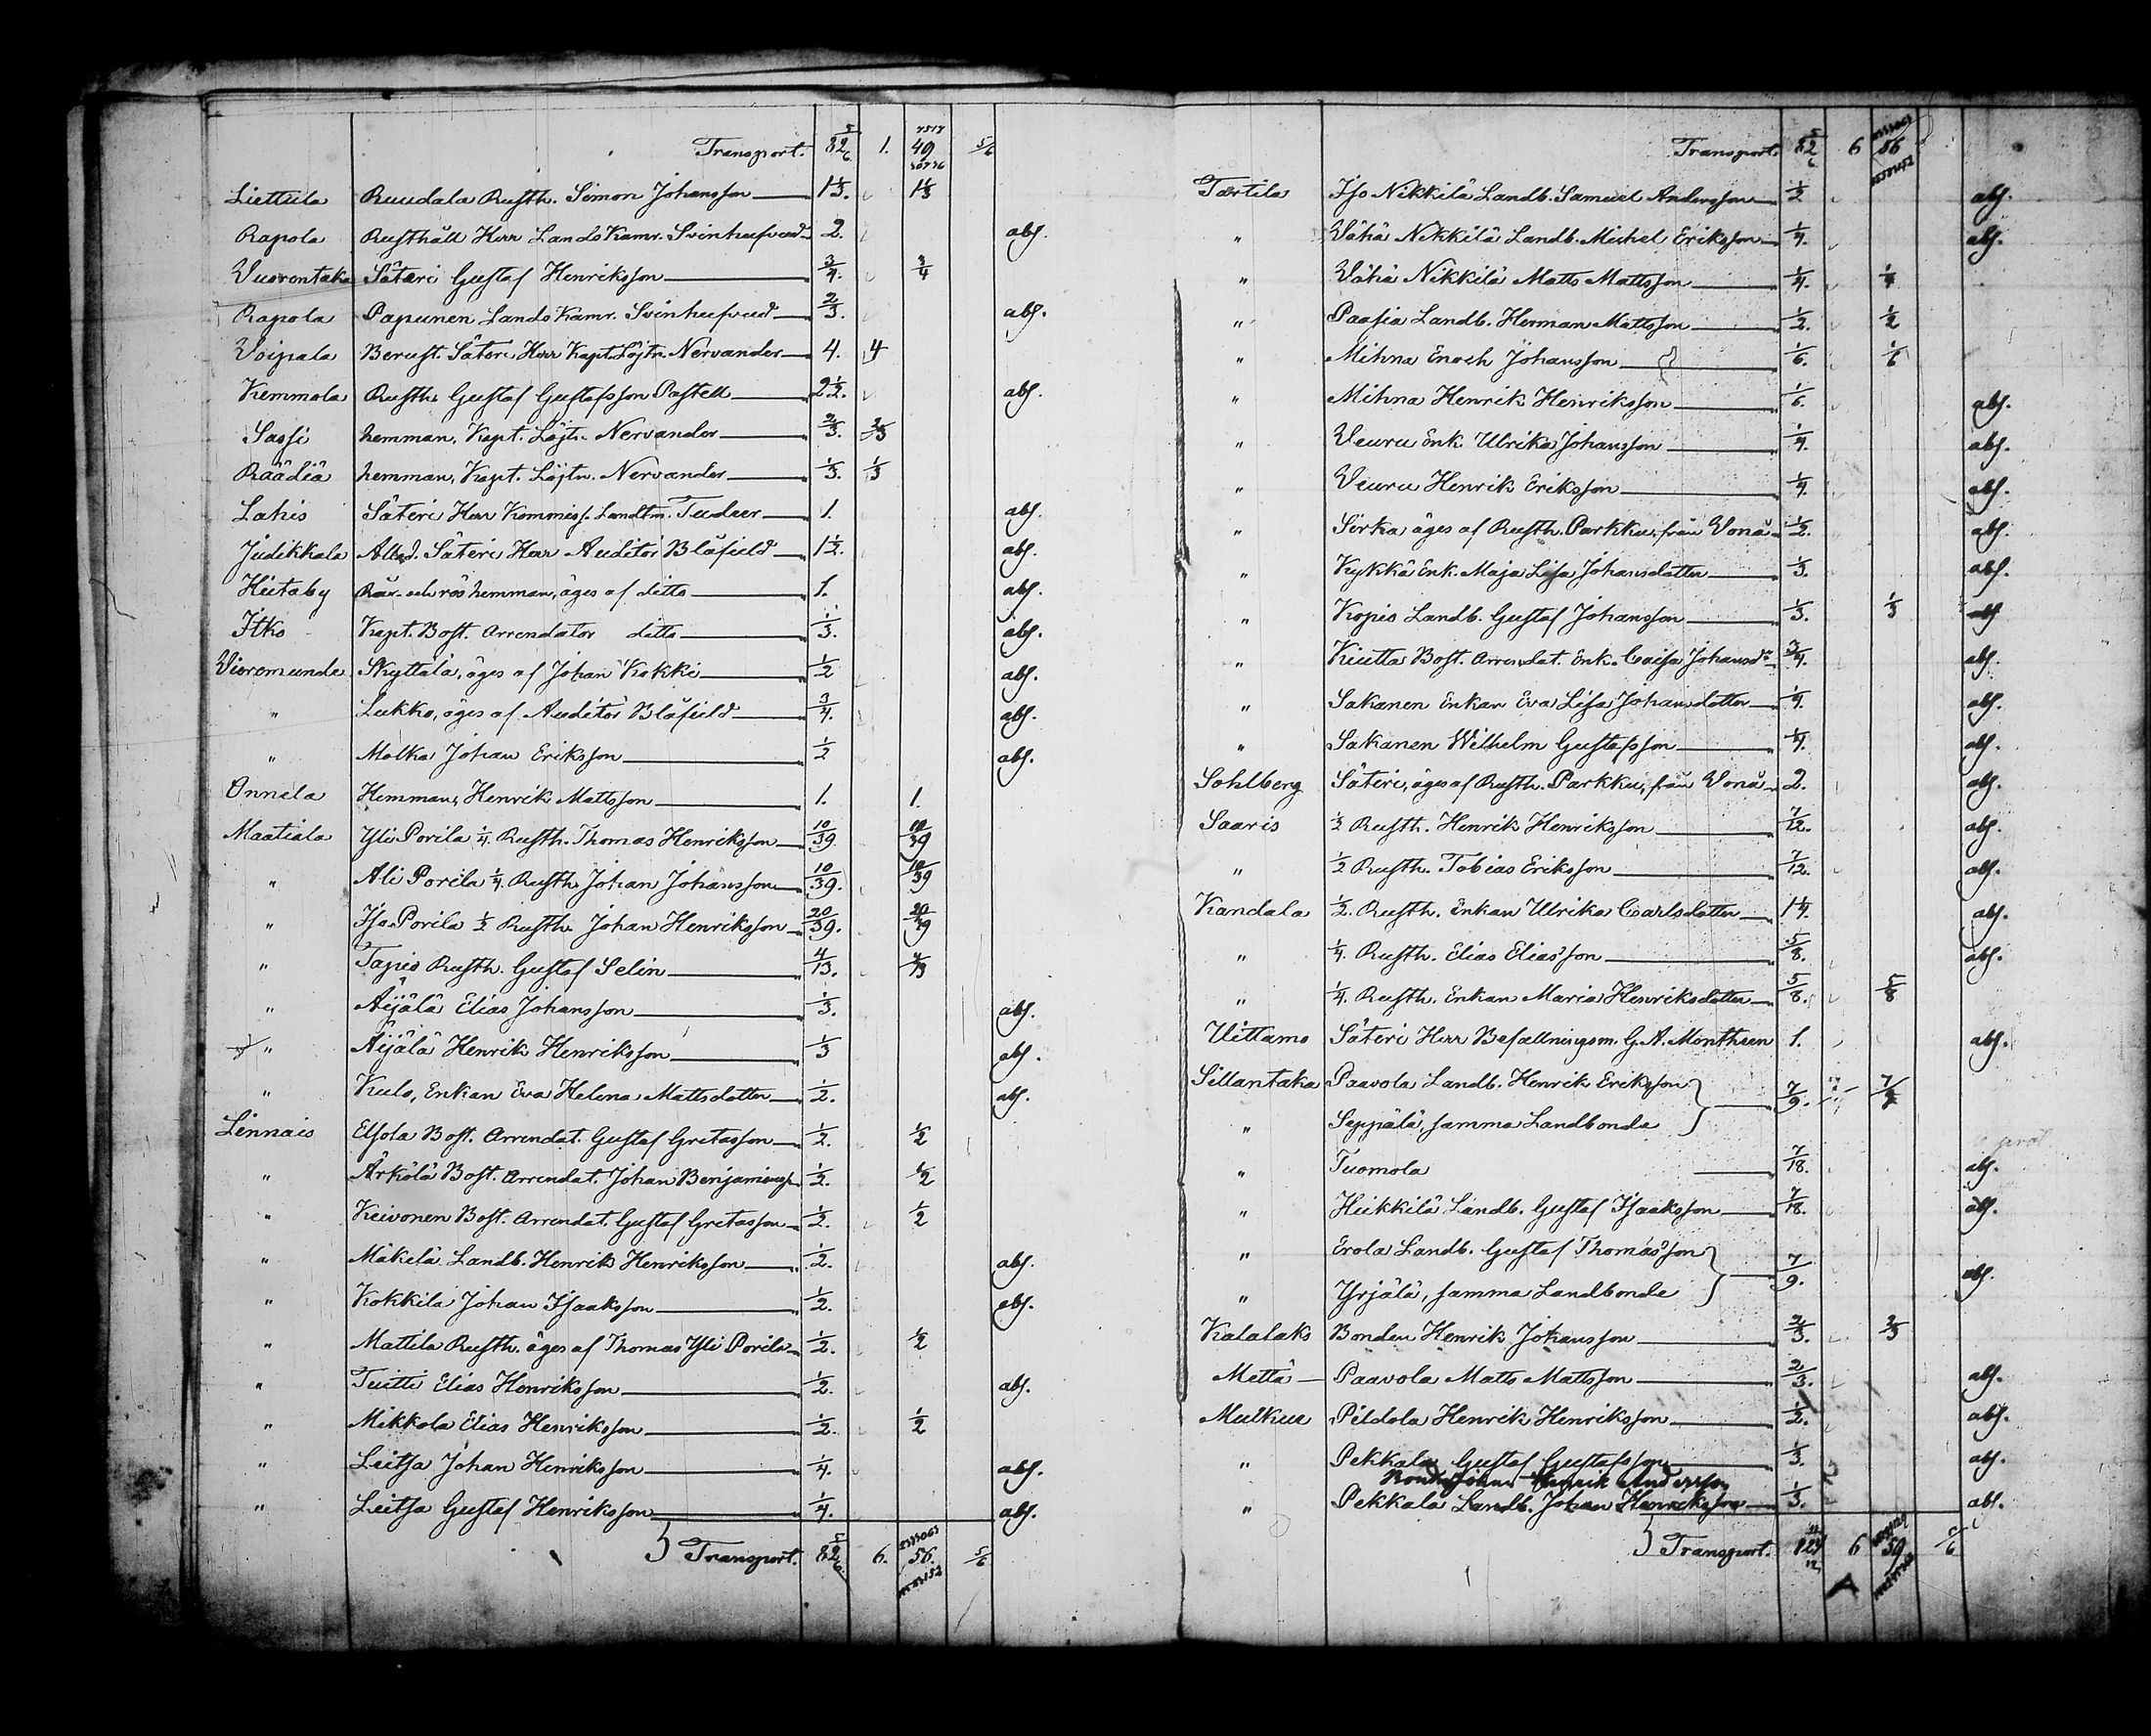 Transport. 82 5/6 1. 49 5/6
Liettula Ruudala Rusth. Simon Johansson 1 1/3. 1 1/3
Rapola Rusthåll Herr Lands Kamr. Svinhufvud 2. abs.
Vuorentaka Säteri Gustaf Henriksson 3/4. 3/4
Rapola Papunen Lands Kamr. Svinhufvud 2/3. abs.
Voipala Berust. Säteri Herr Kapt. Löjtn. Nervander 4. 4
Kemmola Rusth. Gustaf Gustafsson Pastell 2 1/2. abs.
Sassi hemman, Kapt. Löjtn. Nervander 2/3. 2/3
Räädiä hemman, Kapt. Löjtn. Nervander 1/3. 1/3
Lahis Säteri Herr Kommiss. Landtm. Tudeer 1. abs.
Judikkala Allod. Säteri Herr Auditör Blåfield 1 1/2. abs.
Hiitaby Rå- och rös hemman, äges af ditto 1. abs.
Itko Kapt. Bost. Arrendator ditto 1/3. abs.
Vioremunde Skyttälä, äges af Johan Kokki 1/2 abs.
" Lukko, äges af Auditör Blåfield 3/4. abs.
" Molka Johan Eriksson 1/2 abs.
Onnela Hemman, Henrik Mattsson 1. 1.
Maatiala Yli Porila 1/4. Rusth. Thomas Henriksson 10/39 10/39
" Ali Porila 1/4. Rusth. Johan Johansson 10/39. 10/39
" Iso Porila 1/2 Rusth. Johan Henriksson 20/39. 20/39
" Tapio Rusth. Gustaf Selin 4/13. 4/13
" Äijälä Elias Johansson 1/3. abs.
" Äijälä Henrik Henriksson 1/3 abs.
" Kulo, Enkan Eva Helena Mattsdotter 1/2. abs.
Linnais Elsola Bost. Arrendat. Gustaf Gretasson 1/2. 1/2
" Ärkölä Bost. Arrendat. Johan Benjaminss. 1/2. 1/2
" Keivonen Bost. Arrendat. Gustaf Gretasson 1/2. 1/2
" Mäkelä Landb. Henrik Henriksson 1/2. abs.
" Kokkila Johan Isaaksson 1/2. abs.
" Mattila Rusth. äges af Thomas Yli Porila 1/2. 1/2
" Tuitti Elias Henriksson 1/2. abs.
" Mikkola Elias Henriksson 1/2. 1/2
" Leitsa Johan Henriksson 1/4. abs.
" Leitsa Gustaf Henriksson 1/4. abs.
Transport. 82 5/6. 6. 56. 5/6
Transport. 82 5/6 6 56
Tærtila Iso Nikkilä Landb. Samuel Andersson 1/2 abs.
" Vähä Nikkilä Landb. Michel Eriksson 1/4. abs.
" Vähä Nikkilä Matts Mattsson 1/4. 1/4
" Paasia Landb. Herman Mattsson 1/2. 1/2
" Mihna Enoch Johansson 1/6. 1/6
" Mihna Henrik Henriksson 1/6. abs.
" Veuru Enk. Ulrika Johansson 1/4. abs.
" Veuru Henrik Eriksson 1/4. abs.
" Sirka äges af Rusth. Parkku, från Vonå 1/2. abs.
" Kykkä Enk. Maja Lisa Johansdotter 1/3. abs.
" Kopis Landb. Gustaf Johansson 1/3. 1/3 abs
" Kiutta Bost. Arrendat. Enk. Caisa Johansdr. 3/4. abs.
" Sakanen Enkan Eva Lisa Johansdotter 1/4. abs.
" Sakanen Wilhelm Gustafsson 1/4. abs.
Sohlberg Säteri, äges af Rusth. Parkku, från Vonå 2. abs.
Saaris 1/2 Rusth. Henrik Henriksson 7/12. abs.
" 1/2 Rusth. Tobias Eriksson 7/12. abs.
Kandala 1/2. Rusth. Enkan Ulrika Carlsdotter 1 1/4. abs.
" 1/4. Rusth. Elias Eliasson 5/8. abs.
" 1/4. Rusth. Enkan Maria Henriksdotter 5/8. 5/8
Uittamo Säteri Herr Befallningsm. G. A. Monthsen 1. abs.
Sillantaka Paavola Landb. Henrik Eriksson 7/9. 7/9
" Seppälä, samma Landbonde
" Tuomola 7/18. abs.
" Heikkilä Landb. Gustaf Isaaksson 7/18. abs.
" Erola Landb. Gustaf Thomasson 7/9. abs.
" Yrjälä, samma Landbonde
Kalalaks Bonden Henrik Johansson 2/3. 2/3
Mettä Paavola Matts Mattsson 2/3. abs.
Mulkua Pildola Henrik Henriksson 1/2. abs.
" Pekkala Gustaf Gustafsson 1/3. abs.
Henrik Andersson
" Pekkala Landb. Johan Henriksson 1/3. abs.
Transport. 6 59 5/6